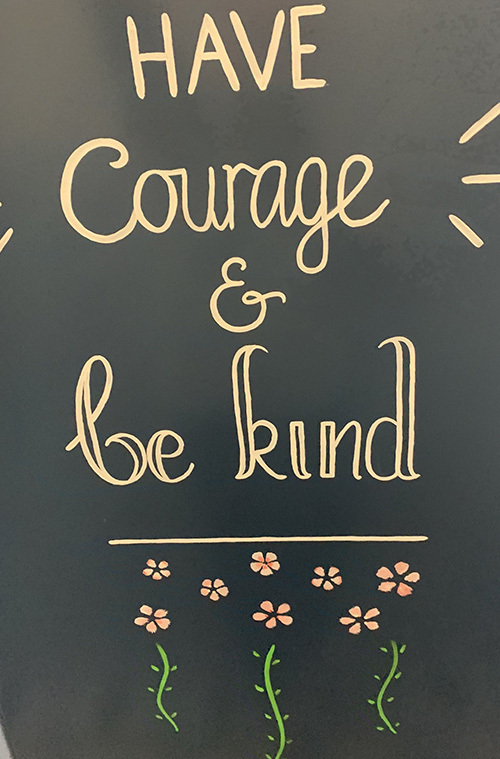 HAVE
Courage
&
be kind